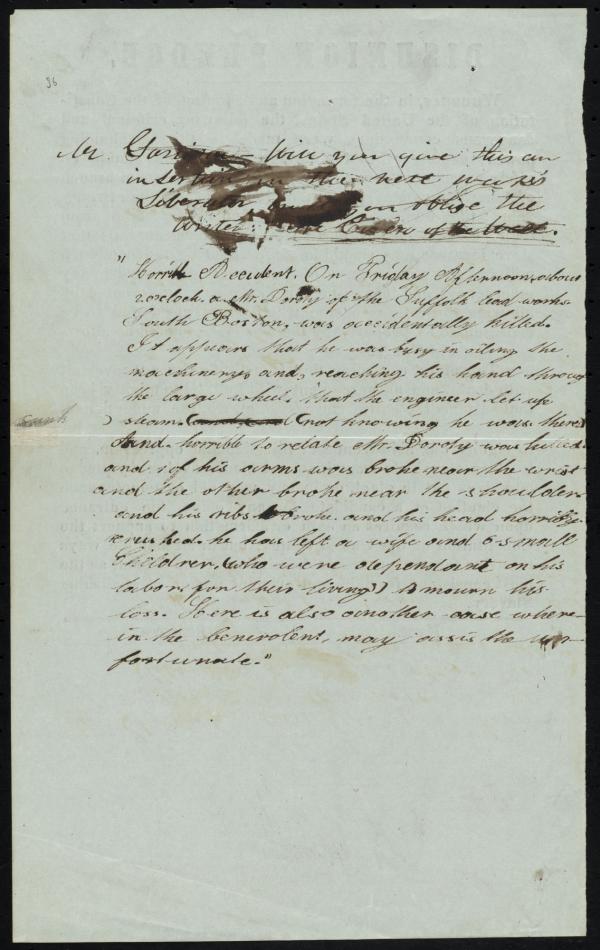 DISUNION PLEDGE
36
Mr. Garrison - Will you give this an
insertion in the next week's
Liberator and oblige the
writer: Cicero of the West.
"Horrible Accident. On Friday Afternoon, about
2 o'clock. a Mr. Doroty of the Suffolk lead works
South Boston, was accidentally killed.
It appears that he was busy in oiling the
machinery, and, reaching his hand through
the large wheel, that the engineer let up
steam. (not knowing he was there)
And. horrible to relate Mr. Doroty was killed
and 1 of his arms was broke near the wrist
and the other broke near the shoulder
and his ribs broke. and his head horribly
crushed. he has left a wife and 6 small
Children, (who were dependant on his
labor, for their living)) to mourn his
loss. Here is also another case where-
in the benevolent, may assis the un-
fortunate."